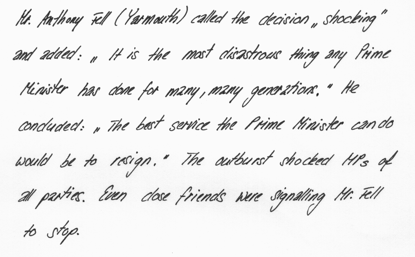 Mr. Anthony Fell (Yarmouth) called the decision „shocking"
and added: „ It is the most disastrous thing any Prime
Minister has done for many, many generations." He
concluded: „ The best service the Prime Minister can do
would be to resign." The outburst shocked MPs of
all parties. Even close friends were signalling Mr. Fell
to stop.